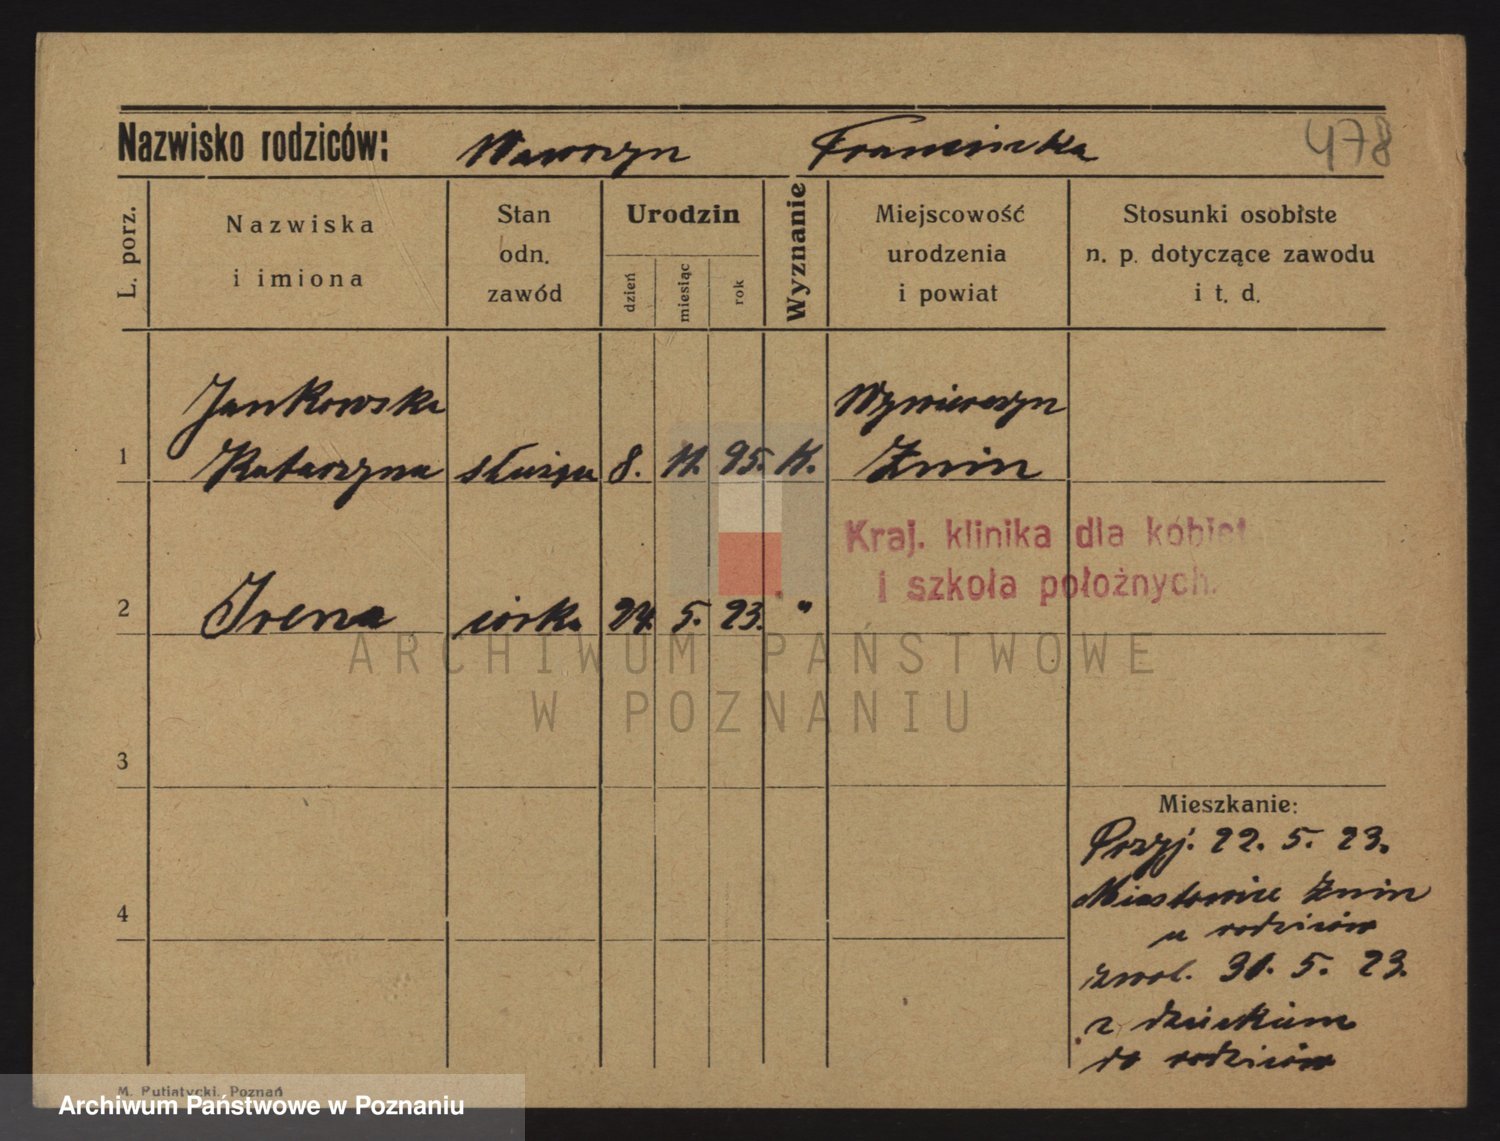 Nazwisko rodziców: Wawrzyn Franciszka 478
L. porz.
Nazwiska
i imiona
Stan
odn.
zawód
Urodzin
dzień
miesiąc
rok
Wyznanie
Miejscowość
urodzenia
i powiat
Stosunki osobiste
n. p. dotyczące zawodu
i t. d.
Jankowska Wywieroszyn
1 Katarzyna służąca 8. 11. 95. K. Żnin
Kraj. klinika dla kobiet
i szkoła położnych.
2 Irena córka 24. 5. 23. "
ARCHIWUM PAŃSTWOWE
W POZNANIU
3
Mieszkanie:
Przyj. 22. 5. 23.
Miastowice Żnin
4
u rodziców
zwol. 30. 5. 23.
z dzieckiem
do rodziców
M. Putiatycki, Poznań
Archiwum Państwowe w Poznaniu